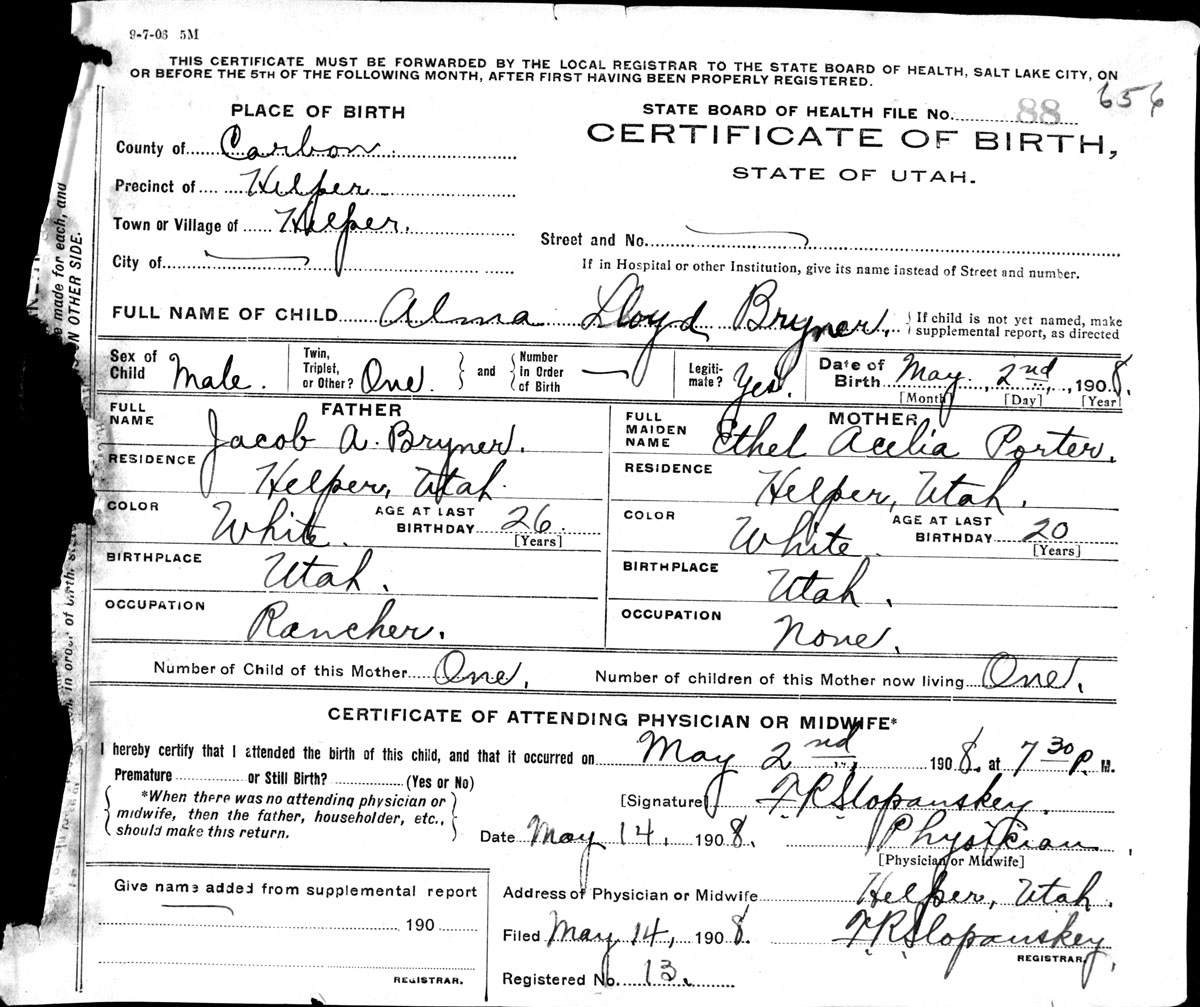 9-7-03 5M
THIS CERTIFICATE MUST BE FORWARDED BY THE LOCAL REGISTRAR TO THE STATE BOARD OF HEALTH, SALT LAKE CITY, ON
OR BEFORE THE 5TH OF THE FOLLOWING MONTH, AFTER FIRST HAVING BEEN PROPERLY REGISTERED.
656
PLACE OF BIRTH
STATE BOARD OF HEALTH FILE NO. 88
CERTIFICATE OF BIRTH,
STATE OF UTAH.
County of Carbon.
Precinct of Helper
Town or Village of Helper.
Street and No.
City of
If in Hospital or other Institution, give its name instead of Street and number.
FULL NAME OF CHILD Alma Lloyd Bryner, { If child is not yet named, make
supplemental report, as directed
Sex of Child Male. Twin, Triplet, or Other? One. } and { Number in Order of Birth Legiti- mate? Yes. Date of Birth May, 2nd, 1908.
[Month] [Day] [Year]
FATHER
FULL NAME Jacob A. Bryner.
RESIDENCE Helper, Utah.
COLOR White. AGE AT LAST BIRTHDAY 26.
[Years]
BIRTHPLACE Utah.
OCCUPATION Rancher.
MOTHER
FULL MAIDEN NAME Ethel Acelia Porter.
RESIDENCE Helper, Utah.
COLOR White. AGE AT LAST BIRTHDAY 20
[Years]
BIRTHPLACE Utah.
OCCUPATION None.
Number of Child of this Mother One. Number of children of this Mother now living One.
CERTIFICATE OF ATTENDING PHYSICIAN OR MIDWIFE*
I hereby certify that I attended the birth of this child, and that it occurred on May 2nd, 1908. at 7 30 P. M.
Premature or Still Birth? (Yes or No)
{ *When there was no attending physician or
midwife, then the father, householder, etc.,
should make this return. }
[Signature] F R Slopanskey.
Date May 14, 1908. Physician
[Physician or Midwife]
Address of Physician or Midwife Helper, Utah.
Filed May 14, 1908. F R Slopanskey,
REGISTRAR.
Registered No. 13.
Give name added from supplemental report
190
REGISTRAR.
made for each, and
N OTHER SIDE.
in order of birth.